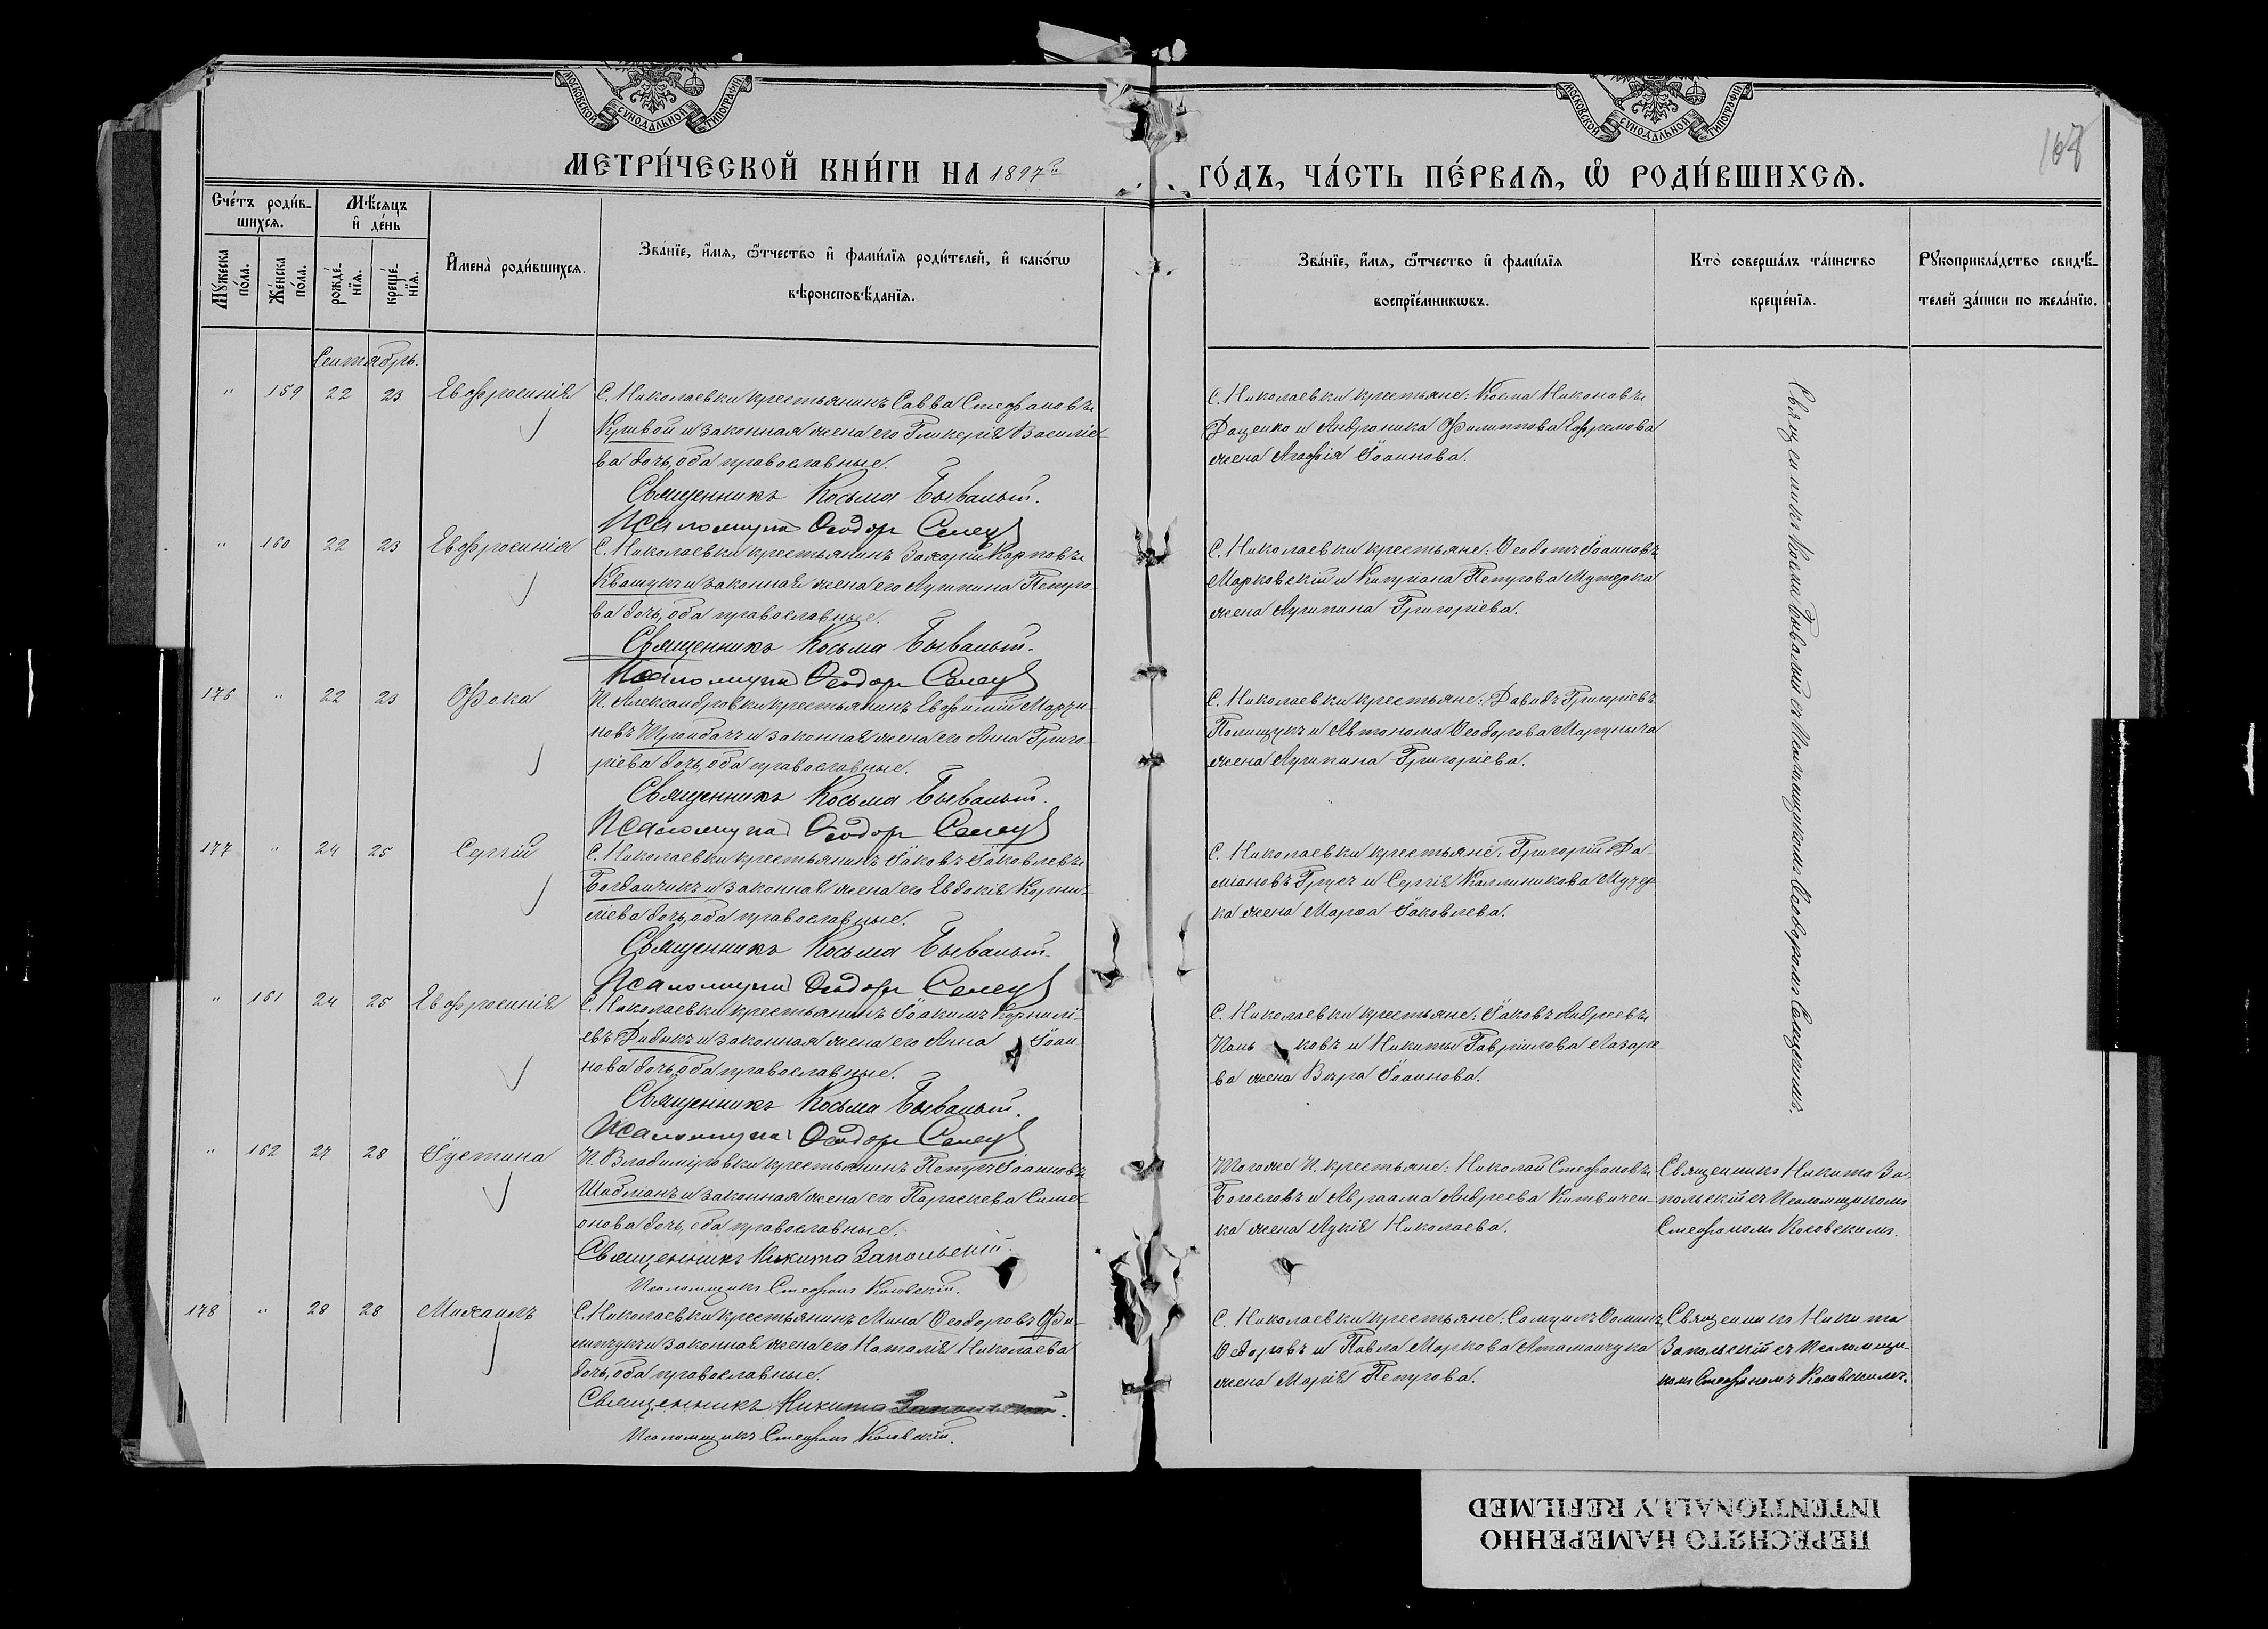 МОСКОВСКОЙ СѴНОДАЛЬНОЙ ТИПОГРАФІИ
МОСКОВСКОЙ СѴНОДАЛЬНОЙ ТИПОГРАФІИ
МЕТРИ́ЧЕСКОЙ КНИ́ГИ НА 1897й ГО́ДЪ, ЧА́СТЬ ПЕ́РВАѦ, Ѽ РОДИ́ВШИХСѦ.
Сче́тъ роди́в-
шихсѧ.
Мꙋ́жеска по́ла.
Же́нска по́ла.
Мѣ́сѧцъ
и҆ де́нь
рожде́-нїѧ.
креще́-нїѧ.
И҆мена̀ роди́вшихсѧ.
Зва́нїе, и҆́мѧ, ѻ҆́тчество и҆ фами́лїѧ роди́телей, и҆ како́гѡ
вѣроисповѣ́данїѧ.
Зва́нїе, и҆́мѧ, ѻ҆́тчество и҆ фами́лїѧ
воспрїе́мникѡвъ.
Кто̀ соверша́лъ та́инство
креще́нїѧ.
Рꙋкоприкла́дство свидѣ́-
телей за́писи по жела́нїю.
Сентябрь.
" 159 22 23 Евфросинія
С. Николаевки крестьянинъ Савва Стефановъ
Кривой и законная жена его Гликерія Василіе-
ва дочь, оба православные.
Священникъ Косьма Бывалый.
Псаломщикъ Ѳеодоръ Селец
С. Николаевки крестьяне: Косма Никоновъ
Даценко и Андроника Филиппова Ефремова
жена Агафія Іоаннова.
Священникъ Косма Бывалый съ Псаломщикомъ Ѳеодоромъ Селецкимъ.
" 160 22 23 Евфросинія
С. Николаевки крестьянинъ Захарій Карповъ
Квашукъ и законная жена его Агрипина Петро-
ва дочь, оба православные.
Священникъ Косьма Бывалый.
Псаломщикъ Ѳеодоръ Селец
С. Николаевки крестьяне: Ѳеодотъ Іоанновъ
Марковскій и Кипріана Петрова
жена Агрипина Григоріева.
176 " 22 23 Фока
П. Александровки крестьянинъ Евфимій Марти-
новъ и законная жена его Анна Григо-
ріева дочь, оба православные.
Священникъ Косьма Бывалый.
Псаломщикъ Ѳеодоръ Селец
С. Николаевки крестьяне: Давидъ Григоріевъ
Полищукъ и Автонома Ѳеодорова Мартынюка
жена Агрипина Григоріева.
177 " 24 25 Сергій
С. Николаевки крестьянинъ Іаковъ Іаковлевъ
Богданчикъ и законная жена его Евдокія Корни-
ліева дочь, оба православные.
Священникъ Косьма Бывалый.
Псаломщикъ Ѳеодоръ Селец
С. Николаевки крестьяне: Григорій Да-
міановъ и Сергія Каллиникова
ка жена Марѳа Іаковлева.
" 161 24 25 Евфросинія
С. Николаевки крестьянинъ Іоакимъ Корнилі-
евъ Дидыкъ и законная жена его Анна Іоан-
нова дочь, оба православные.
Священникъ Косьма Бывалый.
Псаломщикъ Ѳеодоръ Селец
С. Николаевки крестьяне: Іаковъ Андреевъ
Пань ковъ и Никиты Гавріилова Лазаре
ва жена Вѣра Іоаннова.
" 162 27 28 Іустина
П. Владиміровки крестьянинъ Петръ Іоанновъ
и законная жена его Параскева Симе-
онова дочь, оба православные.
Священникъ Никита Запольскій.
Псаломщикъ Стефанъ Косовскій.
Тогоже П. крестьяне: Николай Стефановъ
Богословъ и Авраама Андреева Литвинен-
ка жена Лукія Николаева.
Священникъ Никита За-
польскій съ Псаломщикомъ
Стефаномъ Косовскимъ.
178 " 28 28 Михаилъ
С. Николаевки крестьянинъ Мина Ѳеодоровъ Фи-
липчукъ и законная жена его Наталія Николаева
дочь, оба православные.
Священникъ Никита Запольскій.
Псаломщикъ Стефанъ Косовскій.
С. Николаевки крестьяне: Самуилъ
Ѳедоровъ и Павла Маркова Атаманчука
жена Марія Петрова.
Священникъ Никита
Запольскій съ Псаломщи-
комъ Стефаномъ Косовскимъ.
ПЕРЕСНЯТО НАМЕРЕННО
INTENTIONALLY REFILMED